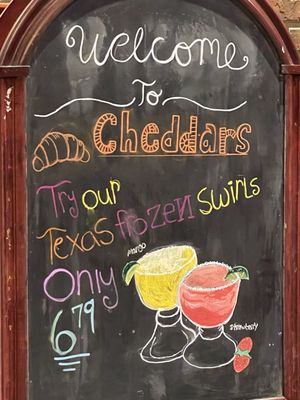 Welcome
To
Cheddars
Try our
Texas frozen Swirls
Only
6.79
mango
strawberry